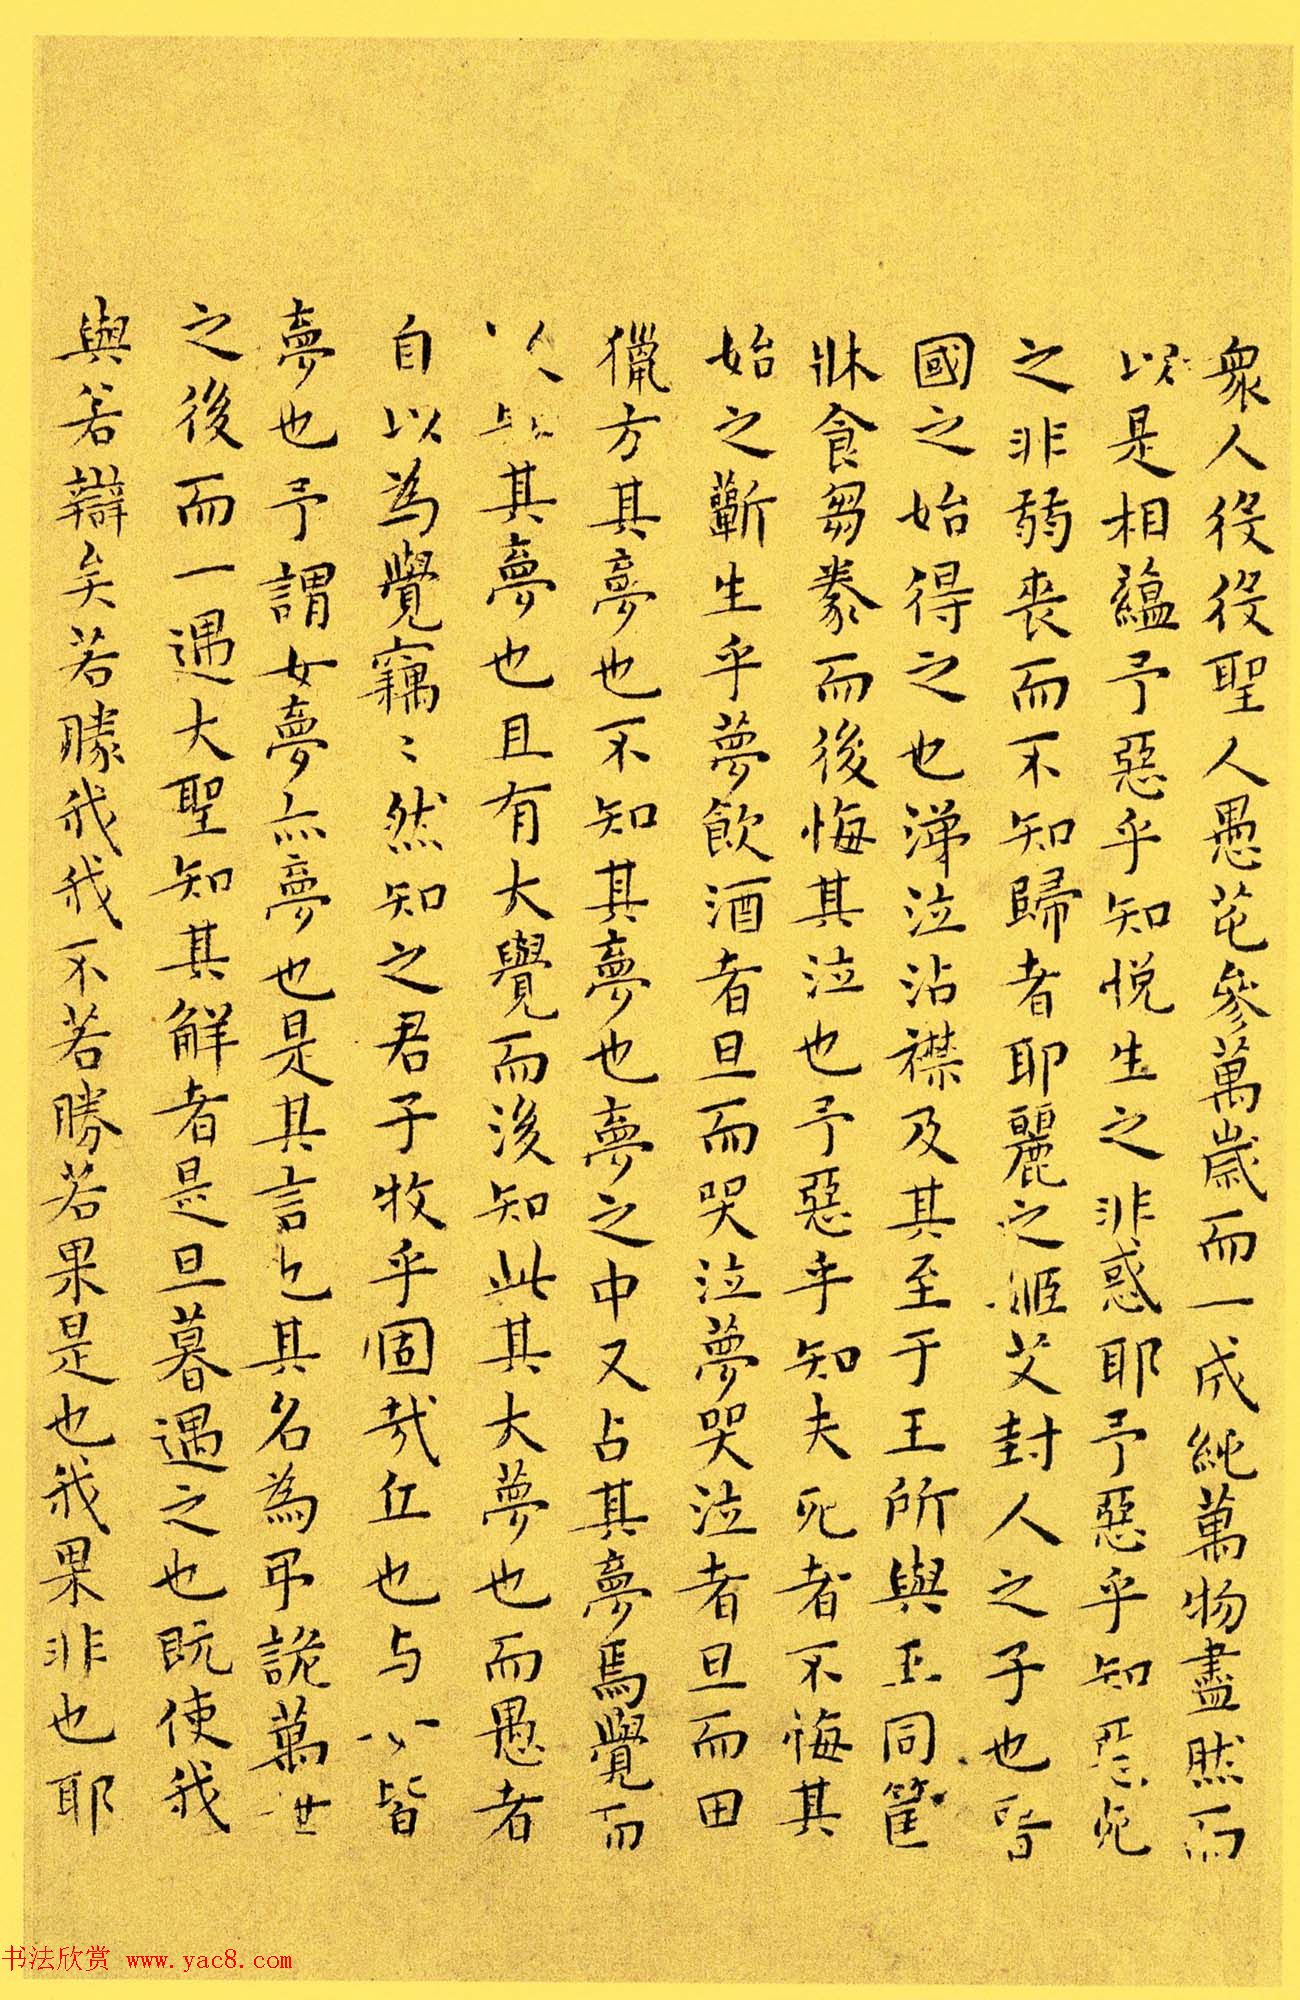 衆人役役聖人愚芚參萬歲而一成純萬物盡然而
以是相蘊予惡乎知悅生之非惑耶予惡乎知惡死
之非弱喪而不知歸者耶麗之姬艾封人之子也晉
國之始得之也涕泣沾襟及其至于王所與王同筐
牀食芻豢而後悔其泣也予惡乎知夫死者不悔其
始之蘄生乎夢飲酒者旦而哭泣夢哭泣者旦而田
獵方其夢也不知其夢也夢之中又占其夢焉覺而
其夢也且有大覺而後知此其大夢也而愚者
自以為覺竊〻然知之君子牧乎固哉丘也与皆
夢也予謂女夢亦夢也是其言也其名為弔詭萬世
之後而一遇大聖知其解者是旦暮遇之也既使我
與若辯矣若勝我我不若勝若果是也我果非也耶
书法欣赏 www.yac8.com